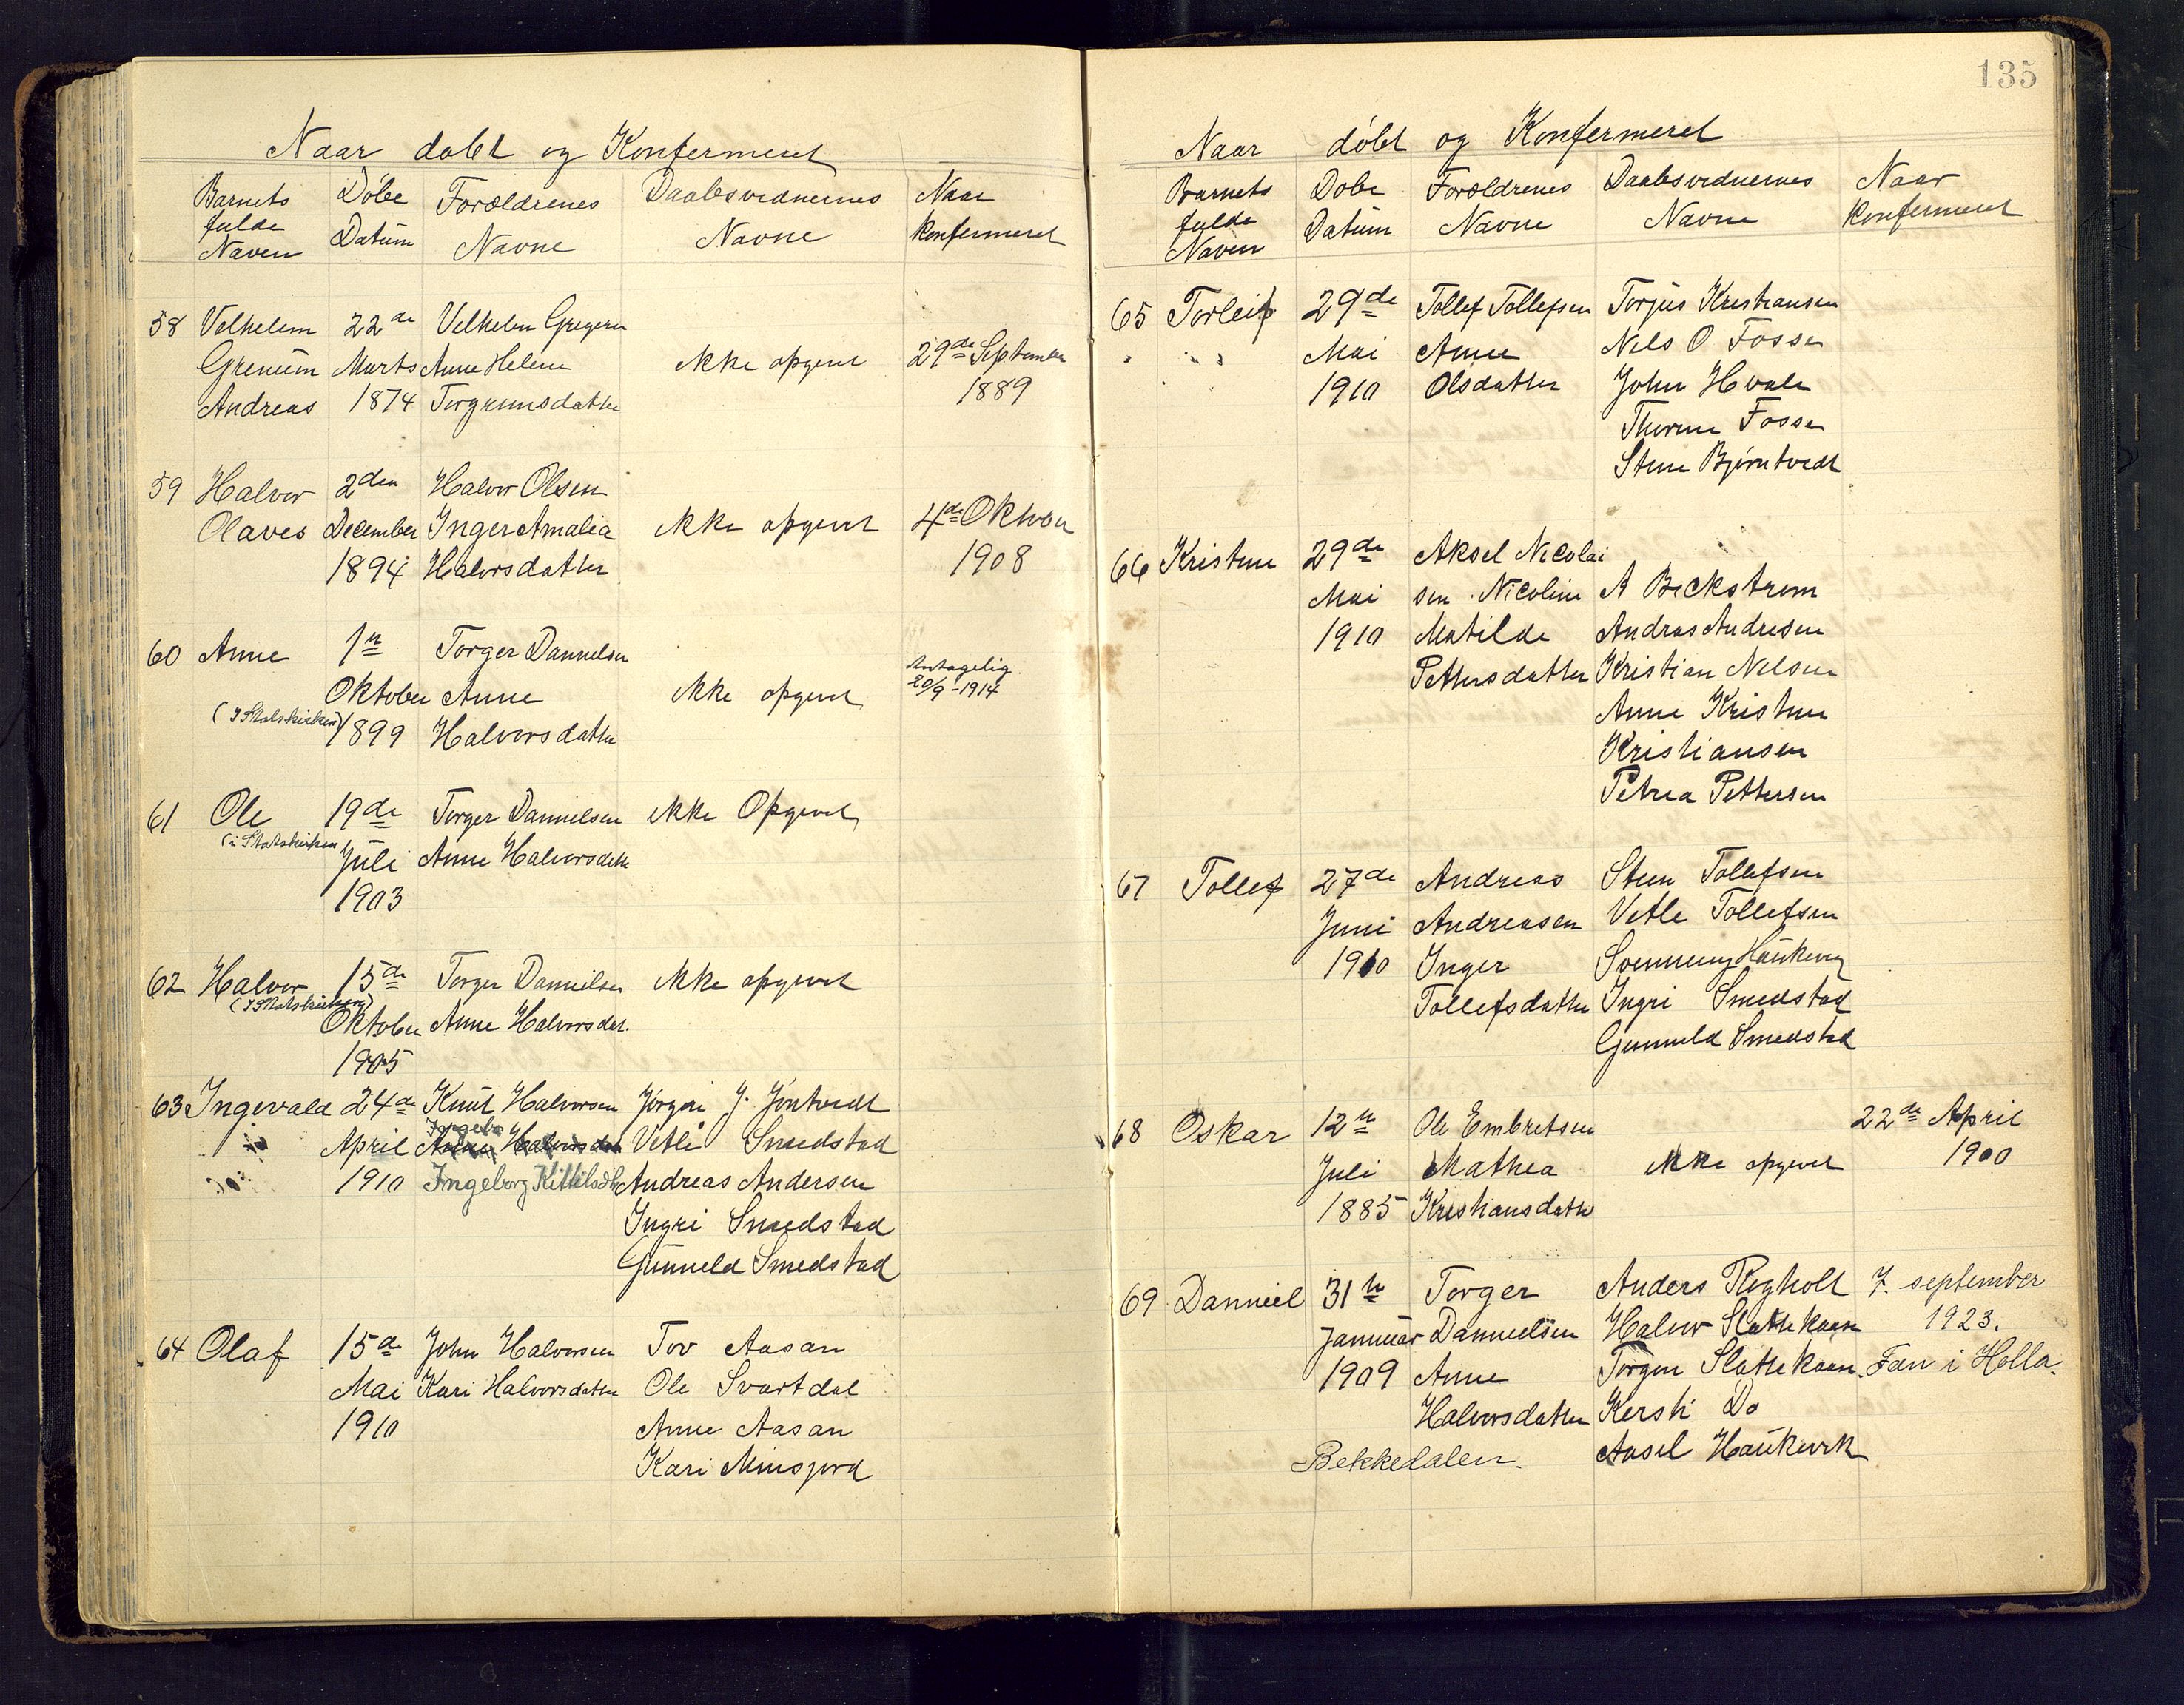 Naar døbt og Konfermeret
Barnets fulde Naven | Døbe Datum | Forældrenes Navne | Daabsvednernes Navne | Naar Konfermeret
58 Velhelm 22de Velhelm Gregersn
Grenum Marts Anne Helene ikke opgevet 29de September
Andreas 1874 Torgrimsdatter 1889
59 Halvor 2den Halvor Olsen
Olaves December Inger Amalia ikke opgevet 4de Oktober
1894 Halvorsdatter 1908
60 Anne 1te Torger Dannelsen Antagelig
Oktober Anne ikke opgevet 20/9-1914
(I Statskirken) 1899 Halvorsdatter
61 Ole 19de Torger Dannielsen ikke Opgevet
(i Statskirken) Juli Anne Halvorsdatter
1903
62 Halvor 15de Torger Dannielsen ikke opgevet
(I Statskirken) Oktober Anne Halvorsdat.
1905
63 Ingevald 24de Knut Halvorsen Jørgen J. Jøntvedt
Ingebr
April Anne Halvorsdat Vetle Smedstad
1910 Ingeborg Kittilsdtr Andreas Andersen
Ingri Smedstad
Gunneld Smedstad
64 Olaf 15de John Halvorsen Tov Aasan
Mai Kari Halvorsdatter Ole Svartdal
1910 Anne Aasan
Kari Minsjord
135
Naar døbt og Konfermeret
Barnets fulde Naven | Døbe Datum | Forældrenes Navne | Daabsvednernes Navne | Naar Konfermeret
65 Torleif 29de Tollef Tollefsen Torjus Kristiansen
Mai Anne Nels O Fosse
1910 Olsdatter John Hvale
Thorine Fosse
Stine Bjørntvedt
66 Kristine 29de Aksel Nicolai
Mai sen. Nicoline A Beckstrøm
1910 Matilde Andreas Andresen
Pettersdatter Kristian Nelsen
Anne Kristine
Kristiansen
Petrea Pettersen
67 Tollef 27de Andreas Steen Tollefsen
Juni Andreasen Vetle Tollefsen
1910 Inger Svennung Haukeveg
Tollefsdatter Ingri Smedstad
Gunneld Smedstad
68 Oskar 12te Ole Embretsen 22de April
Juli Mathea ikke opgevet 1900
1885 Kristiansdatter
69 Danniel 31te Torger Anders Rogholt 7. september
Januar Dannielsen Halvor Slattekaasa 1923.
1909 Anne Torgen Slattekaasa. Fæn i Holla.
Halvorsdatter Kersti Do
Bekkedalen. Aasel Haukverk